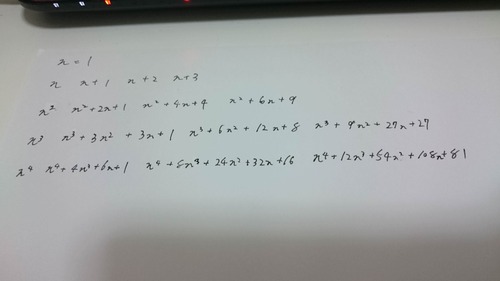 x = 1
x x+1 x+2 x+3
x² x²+2x+1 x²+4x+4 x²+6x+9
x³ x³+3x²+3x+1 x³+6x²+12x+8 x³+9x²+27x+27
x⁴ x⁴+4x³+6x+1 x⁴+8x³+24x²+32x+16 x⁴+12x³+54x²+108x+81